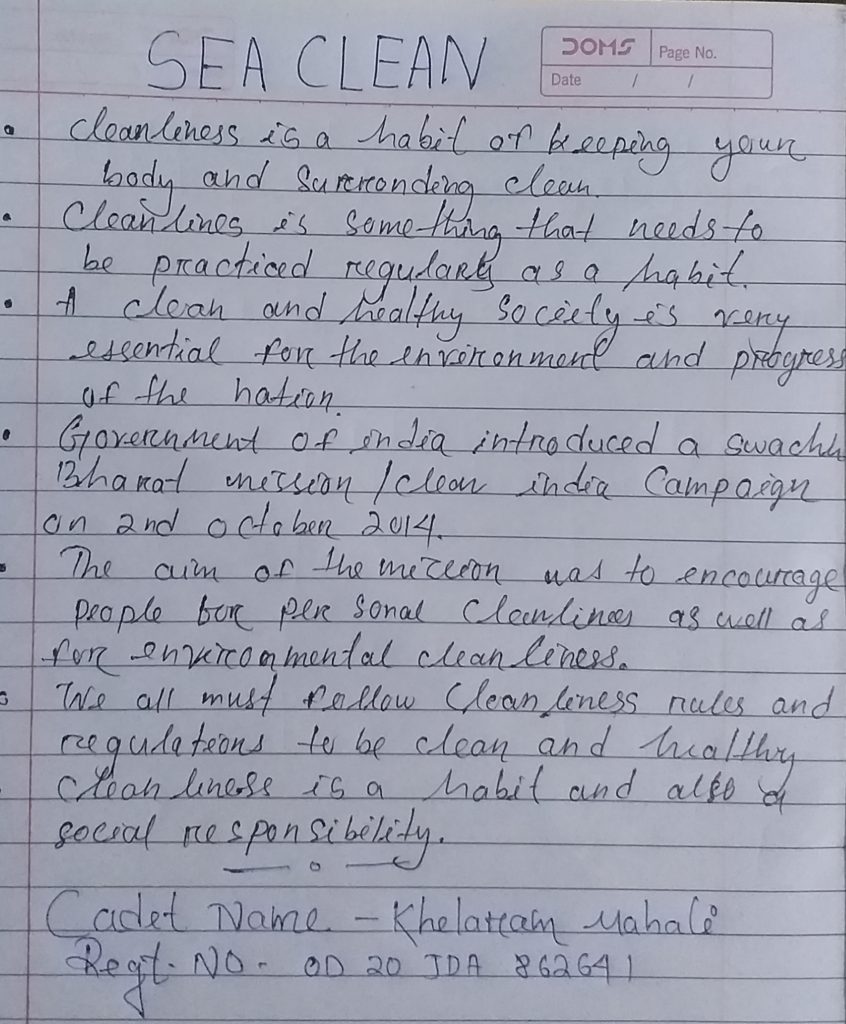 SEA CLEAN
DOMS Page No.
Date / /
• Cleanliness is a habit of keeping your
body and Surrronding clean.
• Cleanlines is something that needs to
be practiced regularly as a habit.
• A clean and healthy society is very
essential for the environment and progress
of the nation.
• Government of india introduced a swachh
Bharat mission / clean india Campaign
on 2nd october 2014.
• The aim of the mission was to encourage
people for personal Cleanlines as well as
for environmental cleanliness.
• We all must follow Cleanliness rules and
regulations to be clean and healthy
• cleanliness is a habit and also a
social responsibility.
Cadet Name - Khelaram Mahali
Regt. NO - OD 20 JDA 862641